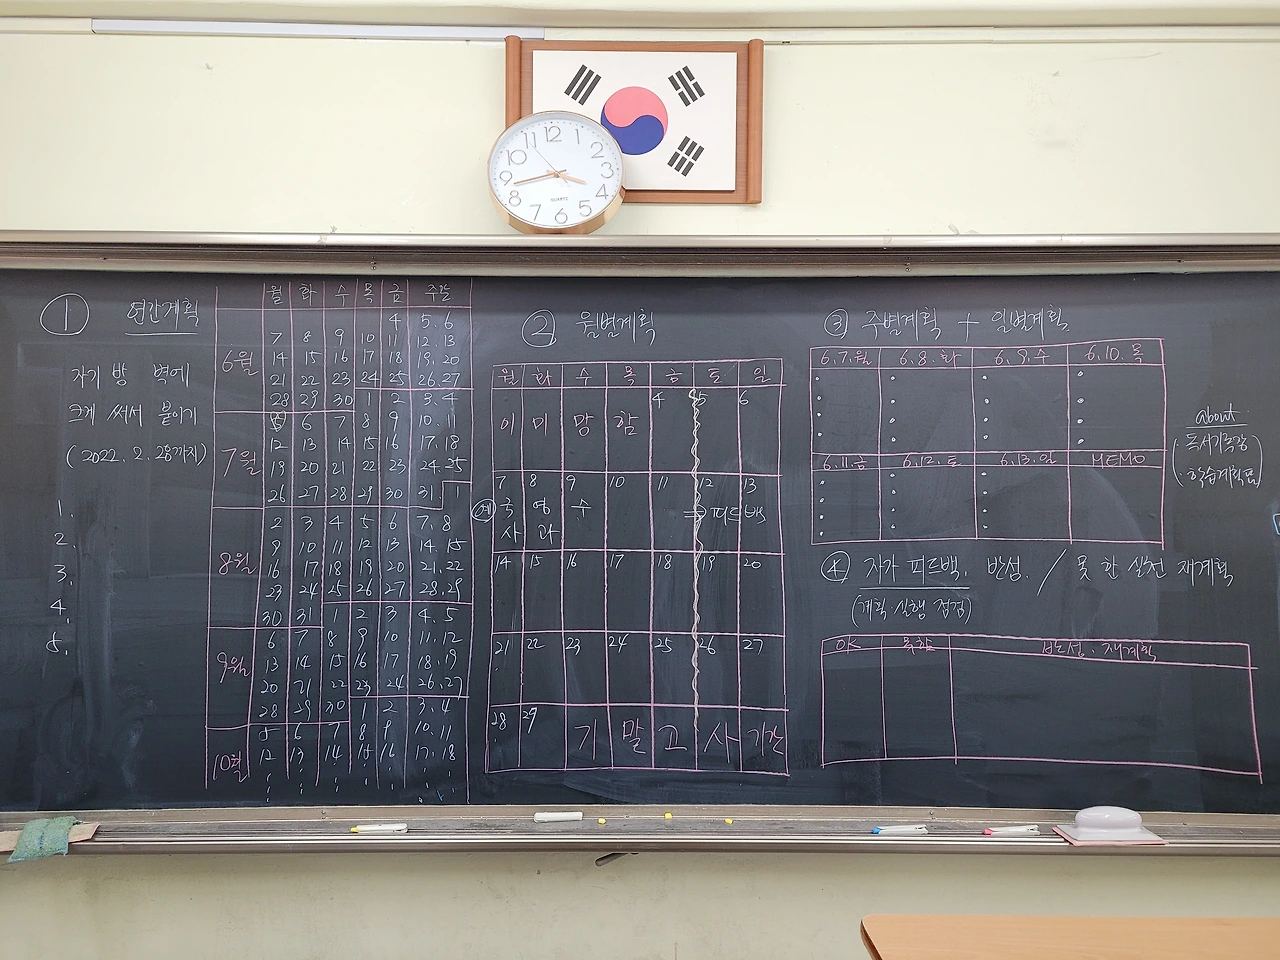 12 1 2 3 4 5 6 7 8 9 10 11
QUARTZ
① 연간계획
자기 방 벽에
크게 써서 붙이기
(2022. 2. 28까지)
1.
2.
3.
4.
5.
월 화 수 목 금 주말
4 5.6
7 8 9 10 11 12.13
6월 14 15 16 17 18 19.20
21 22 23 24 25 26.27
28 29 30 1 2 3.4
5 6 7 8 9 10.11
12 13 14 15 16 17.18
7월 19 20 21 22 23 24.25
26 27 28 29 30 31. 1
2 3 4 5 6 7.8
9 10 11 12 13 14.15
8월 16 17 18 19 20 21.22
23 24 25 26 27 28.29
30 31 1 2 3 4.5
6 7 8 9 10 11.12
9월 13 14 15 16 17 18.19
20 21 22 23 24 26.27
28 29 30 1 2 3.4
5 6 7 8 9 10.11
10월 12 13 14 15 16 17.18
② 월별계획
월 화 수 목 금 토 일
4 5 6
이 미 망 함
7 8 9 10 11 12 13
예 국 영 수 ⇒ 피드백
사 과
14 15 16 17 18 19 20
21 22 23 24 25 26 27
28 29
기 말 고 사 기간
③ 주별계획 + 일별계획
6.7.월 6.8.화 6.9.수 6.10.목
6.11.금 6.12.토 6.13.일 MEMO
about
독서기록장
학습계획표
④ 자가 피드백. 반성. / 못 한 실천 재계획
(계획 실행 점검)
OK 못함 반성. 재계획